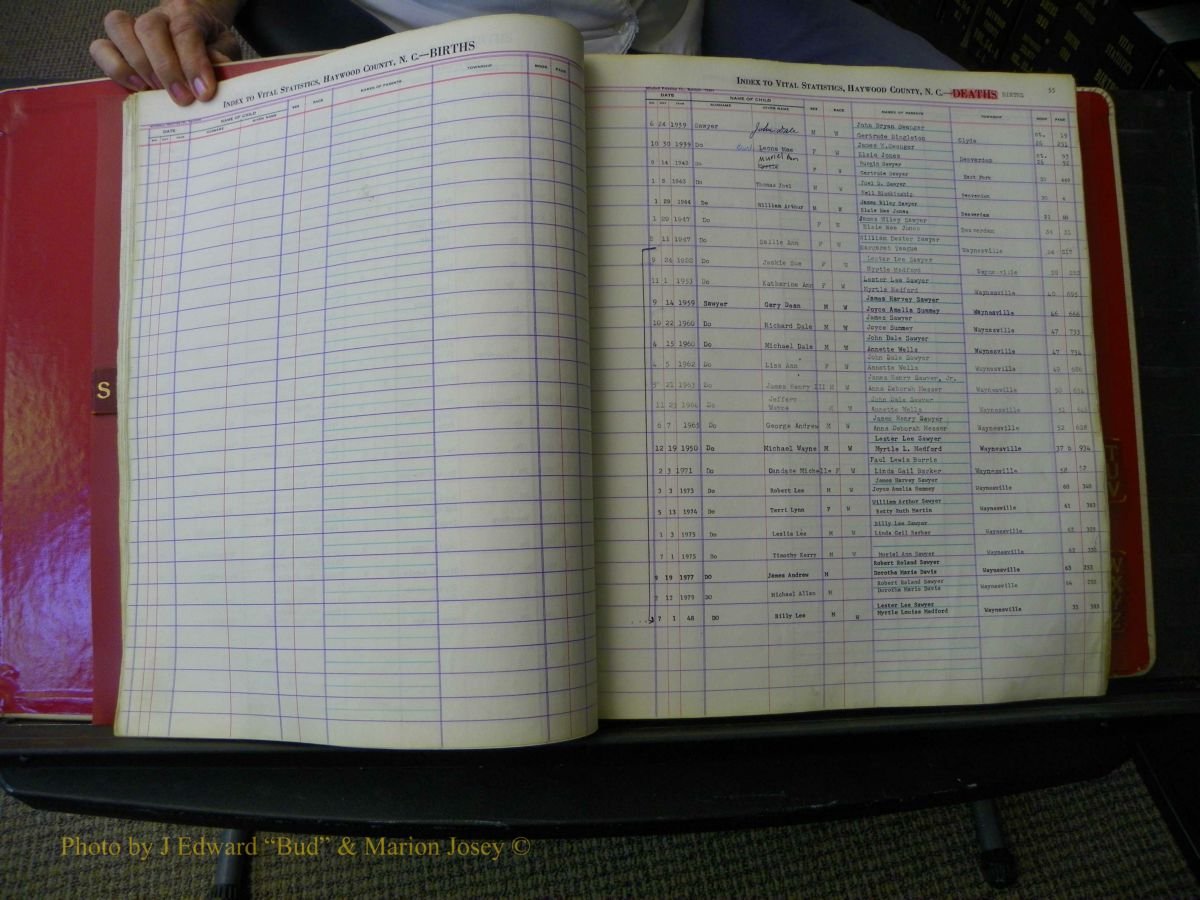 INDEX TO VITAL STATISTICS, HAYWOOD COUNTY, N. C.—BIRTHS
DATE NAME OF CHILD SEX RACE NAMES OF PARENTS TOWNSHIP BOOK PAGE
SURNAME GIVEN NAME
S
INDEX TO VITAL STATISTICS, HAYWOOD COUNTY, N. C.—DEATHS BIRTHS 55
DATE NAME OF CHILD SEX RACE NAMES OF PARENTS TOWNSHIP BOOK PAGE
SURNAME GIVEN NAME
6 24 1939 Sawyer John Dale M W John Bryan Swanger
Gertrude Singleton Clyde St. 19
10 30 1939 Do Leona Mae F W James W. Swanger 26 251
Elsie Jones Beaverdam St. 93
9 14 1942 Do Muriel Ann F W Sawyer
Gertrude Sawyer East Fork
1 8 1943 Do Thomas Joel M W Joel S. Sawyer
Nell Blankinship Beaverdam
1 29 1944 Do William Arthur M W James Wiley Sawyer
Elsie Mae Jones Beaverdam
1 20 1947 Do F W James Wiley Sawyer
Elsie Mae Jones Beaverdam 34 31
5 11 1947 Do Sallie Ann F W William Dexter Sawyer
Margaret Teague Waynesville 34 217
9 24 1952 Do Jackie Sue F W Lester Lee Sawyer
Myrtle Medford Waynesville
11 1 1953 Do Katherine Ann F W Lester Lee Sawyer
Myrtle Medford Waynesville 40 695
9 14 1959 Sawyer Gary Dean M W James Harvey Sawyer
Joyce Amelia Summey Waynesville 46 666
10 22 1960 Do Richard Dale M W James Sawyer
Joyce Summey Waynesville 47 733
4 15 1960 Do Michael Dale M W John Dale Sawyer
Annette Wells Waynesville 47 754
4 5 1962 Do Lisa Ann F W John Dale Sawyer
Annette Wells Waynesville 49 686
5 21 1963 Do James Henry III M W James Henry Sawyer, Jr.
Anna Deborah Messer Waynesville 50 654
11 23 1964 Do Jeffery
Wayne M W John Dale Sawyer
Annette Wells Waynesville 51
6 7 1965 Do George Andrew M W James Henry Sawyer
Anna Deborah Messer Waynesville 52 628
12 19 1950 Do Michael Wayne M W Lester Lee Sawyer
Myrtle L. Medford Waynesville 37 934
2 3 1971 Do Candace Michelle F W Paul Lewis Burris
Linda Gail Barker Waynesville 58 52
3 3 1973 Do Robert Lee M W James Harvey Sawyer
Joyce Amelia Summey Waynesville 60 348
5 13 1974 Do Terri Lynn F W William Arthur Sawyer
Betty Ruth Martin Waynesville 61 363
1 3 1975 Do Leslie Lee M W Billy Lee Sawyer
Linda Gail Barker Waynesville 62 309
7 1 1975 Do Timothy Kerry M W Muriel Ann Sawyer Waynesville 62
9 19 1977 DO James Andrew M Robert Roland Sawyer
Dorotha Marie Davis Waynesville 63 252
2 12 1979 DO Michael Allan M Robert Roland Sawyer
Dorotha Marie Davis Waynesville 64 252
7 1 48 DO Billy Lee M W Lester Lee Sawyer
Myrtle Louise Medford Waynesville 35 383
Photo by J Edward “Bud” & Marion Josey ©